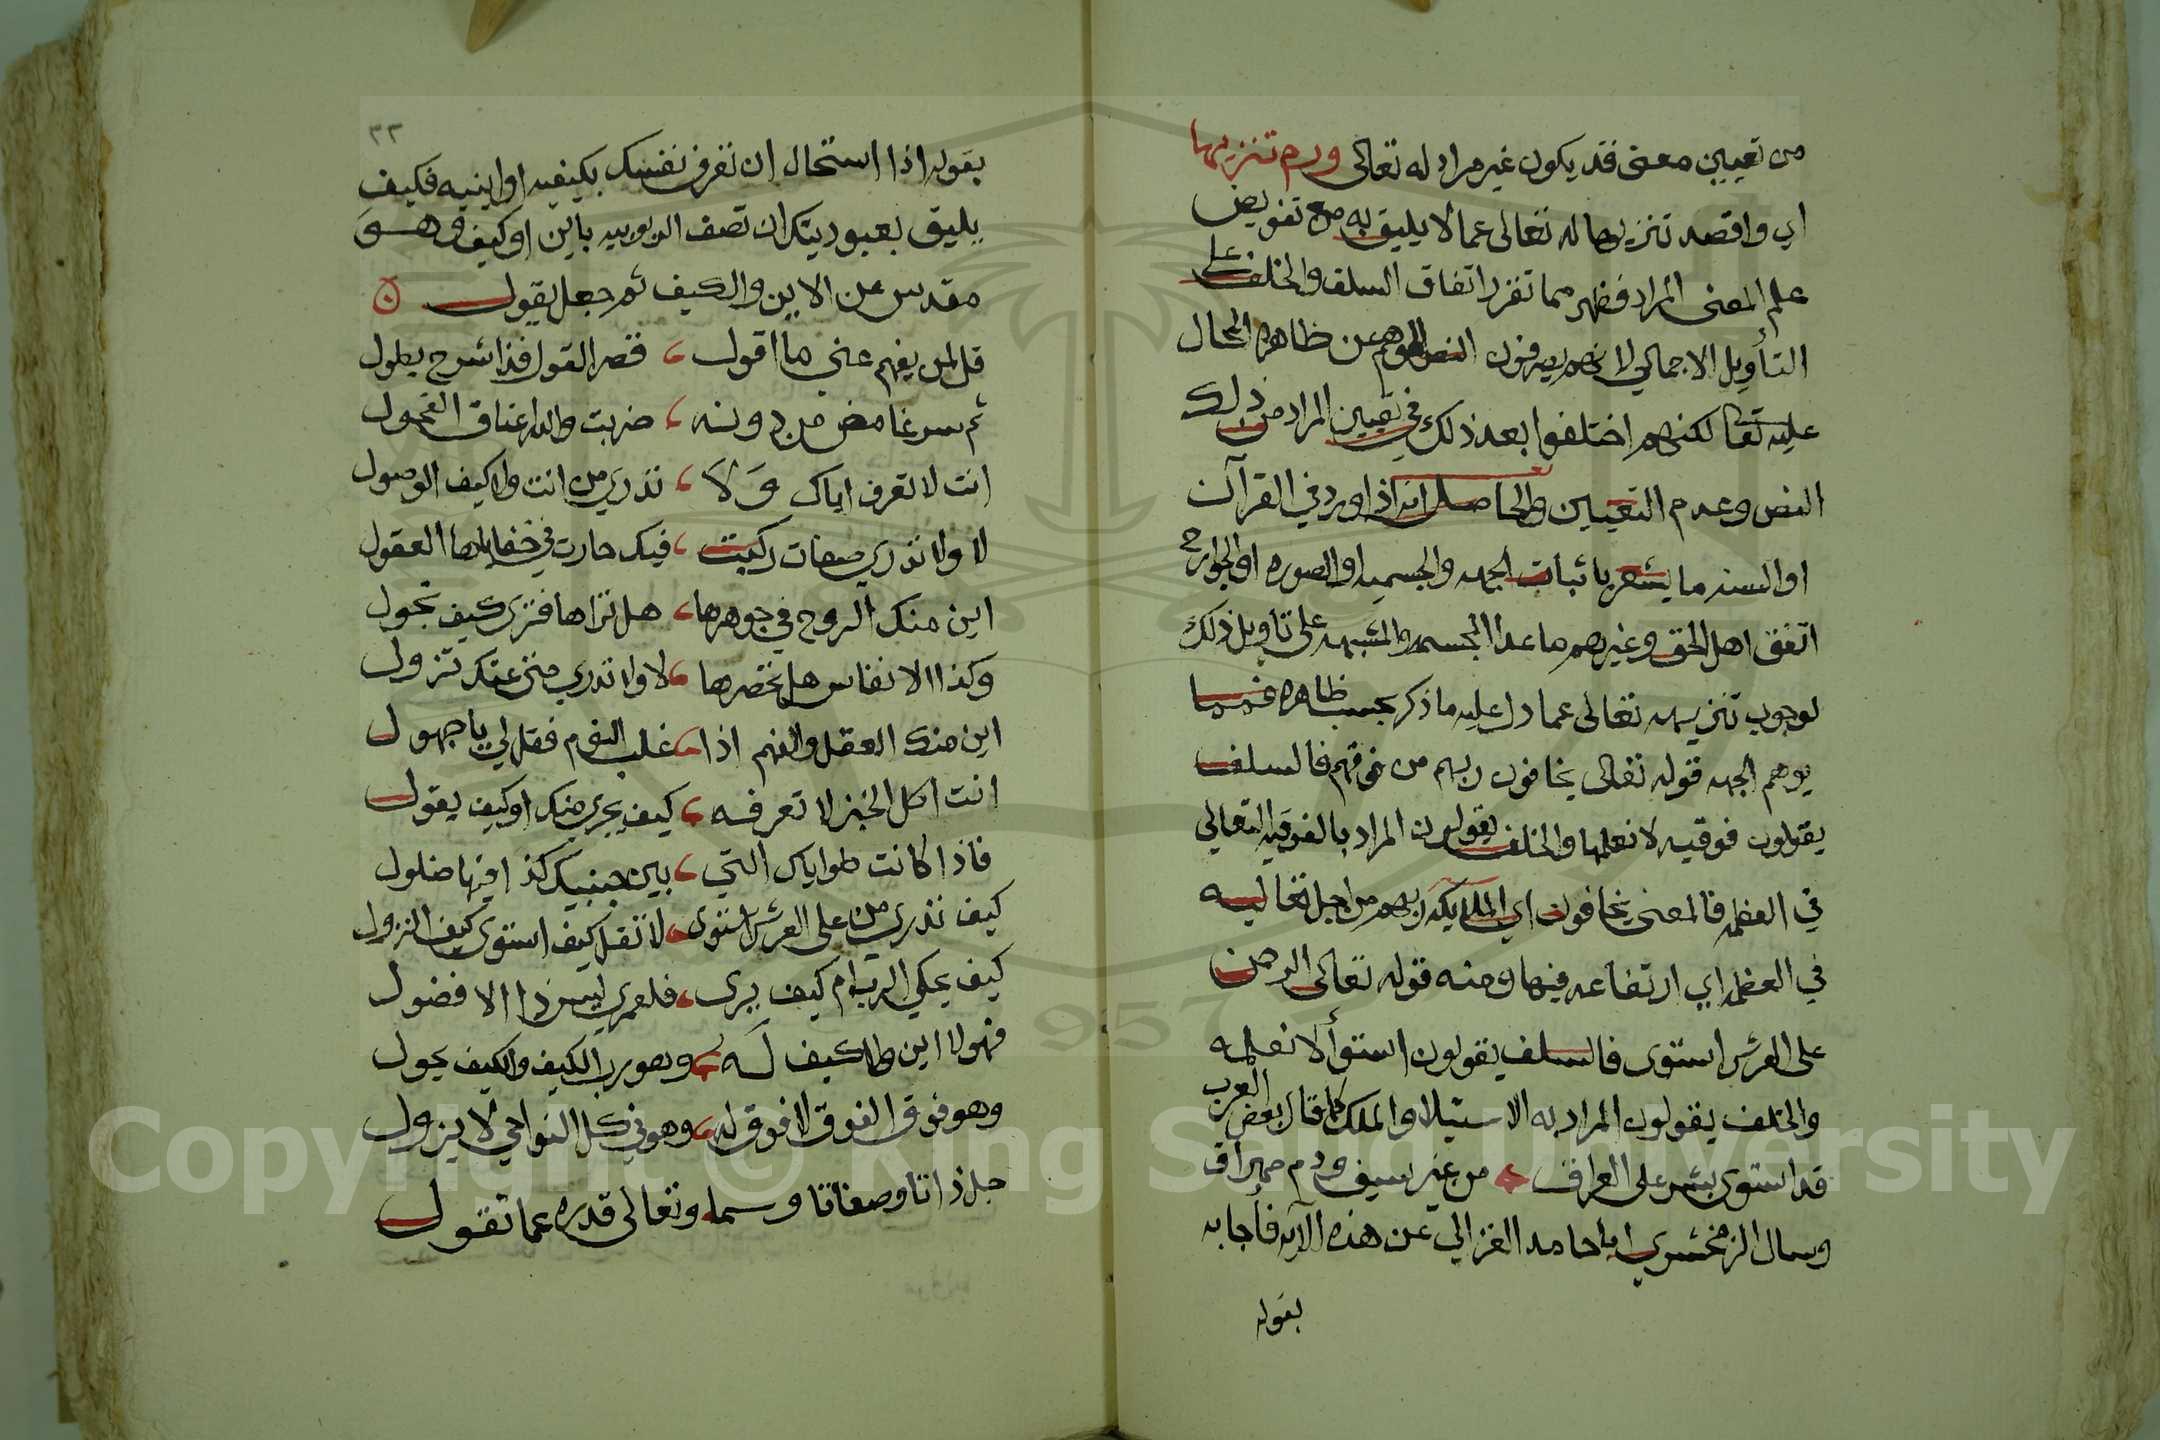 من تعيين معنى قد يكون غير مراد له تعالى ورم تنزيها
اي واقصد تنزيها له تعالى عما لا يليق به مع تفويض
علم المعنى المراد فظهر مما تقرر اتفاق السلف والخلف على
التأويل الاجمالي لانهم يصرفون النص الموهم عن ظاهره المحال
عليه تعالى لكنهم اختلفوا بعد ذلك في تعيين المراد من ذلك
النص وعدم التعيين والحاصل انه اذا ورد في القرآن
او السنه ما يشعر باثبات الجهه والجسميه او الصوره او الجوارح
اتفق اهل الحق وغيرهم ما عدا المجسمه والمشبهه على تأويل ذلك
لوجوب تنزيهه تعالى عما دل عليه ما ذكر بحسب ظاهره فمما
يوهم الجهه قوله تعالى يخافون ربهم من فوقهم فالسلف
يقولون فوقيه لا نعلمها والخلف يقولون المراد بالفوقيه التعالي
في العظمه فالمعنى يخافون اي الملايكه ربهم من اجل تعاليه
في العظمه اي ارتفاعه فيها ومنه قوله تعالى الرحمن
على العرش استوى فالسلف يقولون استوأ لا نعلمه
والخلف يقولون المراد به الاستيلا والملك كما قال بعض العرب
قد استوى بشر على العراق من غير سيف ودم مهراق
وسال الزمخشري ابا حامد الغزالي عن هذه الآيه فأجابه
بقوله
٣٢
بقوله اذا استحال ان تعرف نفسك بكيفيه او اينيه فكيف
يليق بعبوديتك ان تصف الربوبيه باين او كيف وهو
مقدس عن الاين والكيف ثم جعل يقول
قل لمن يفهم عني ما اقول قصر القول فذا شرح يطول
ثم سر غامض من دونه ضربت والله اعناق الفحول
انت لا تعرف اياك ولا تدري من انت ولا كيف الوصول
لا ولا تدري صفات ركبت فيك حارت في خفاياها العقول
اين منك الروح في جوهرها هل تراها فترى كيف تجول
وكذا الانفاس هل تحصرها لا ولا تدري متى عنك تزول
اين منك العقل والفهم اذا غلب النوم فقل لي يا جهول
انت اكل الخبز لا تعرفه كيف يجري منك او كيف يقول
فاذا كانت طواياك التي بين جنبيك كذا فيها ضلول
كيف تدري من على العرش استوى لا تقل كيف استوى كيف النزول
كيف يحكي الرب ام كيف يرى فلعمري ليس ذا الا فضول
فهو لا اين ولا كيف له وهو رب الكيف والكيف يحول
وهو فوق الفوق لا فوق له وهو في كل النواحي لا يزول
جل ذاتا وصفاتا وسما وتعالى قدره عما تقول
Copyright © King Saud University
1957